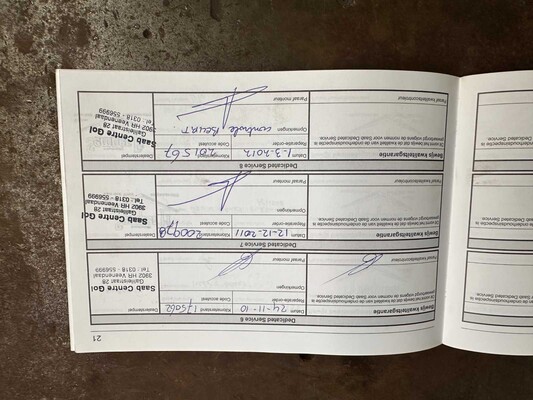 21
Dedicated Service 6
Bewijs kwaliteitsgarantie
Dit stempel is het bewijs dat de kwaliteit van de onderhoudsinspectie is
gewaarborgd volgens de normen voor Saab Dedicated Service.
Paraaf kwaliteitscontroleur
Datum 24-11-10 Kilometerstand 175062
Reparatie-order Code accutest
Opmerkingen
Paraaf monteur
Dealerstempel
Saab Centre Gol
Galileistraat 28
3902 HR Veenendaal
Tel : 0318 - 556999
Dedicated Service 7
Bewijs kwaliteitsgarantie
Dit stempel is het bewijs dat de kwaliteit van de onderhoudsinspectie is
gewaarborgd volgens de normen voor Saab Dedicated Service.
Paraaf kwaliteitscontroleur
Datum 12-12-2011 Kilometerstand 200978
Reparatie-order Code accutest
Opmerkingen
Paraaf monteur
Dealerstempel
Saab Centre Gol
Galileistraat 28
3902 HR Veenendaal
Tel : 0318 - 556999
Dedicated Service 8
Bewijs kwaliteitsgarantie
Dit stempel is het bewijs dat de kwaliteit van de onderhoudsinspectie is
gewaarborgd volgens de normen voor Saab Dedicated Service.
Paraaf kwaliteitscontroleur
Datum 1-3-2012 Kilometerstand 201567
Reparatie-order Code accutest
Opmerkingen controle Beurt
Paraaf monteur
Dealerstempel
Saab Centre Gol
Galileistraat 28
3902 HR Veenendaal
Tel : 0318 - 556999